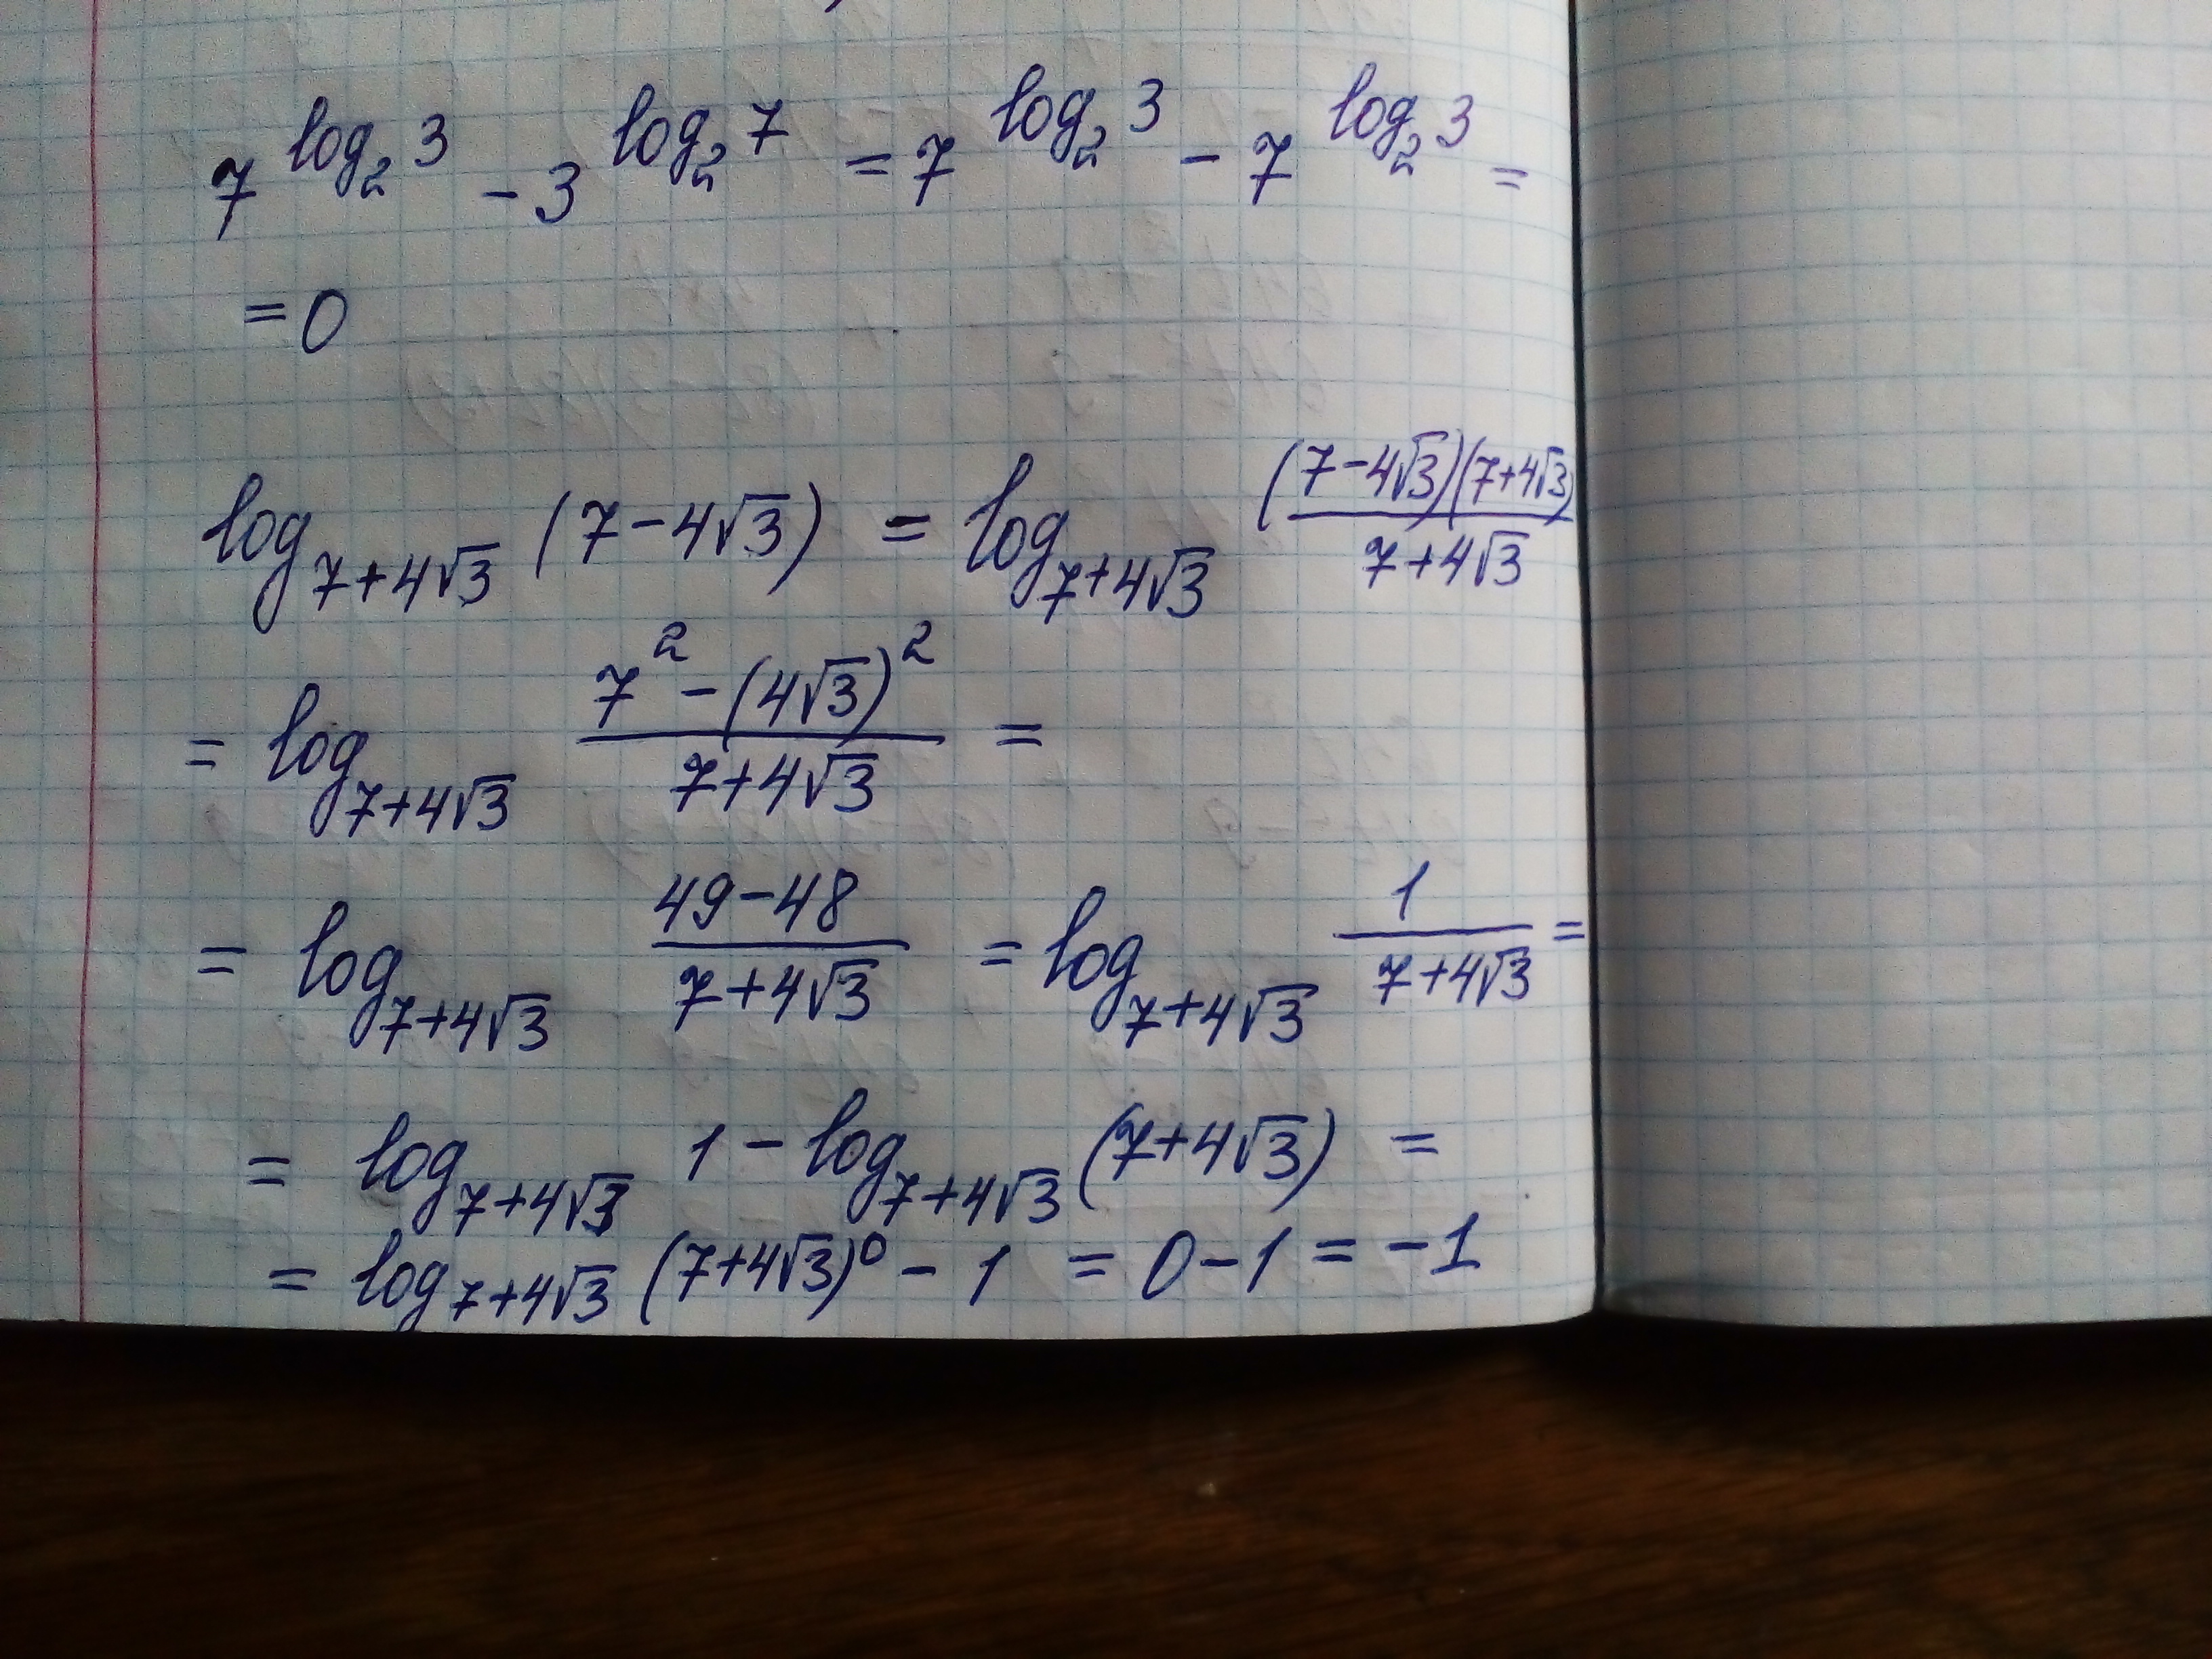 7^{log_2 3} - 3^{log_2 7} = 7^{log_2 3} - 7^{log_2 3} =
= 0
log_{7+4√3} (7-4√3) = log_{7+4√3} \frac{(7-4√3)(7+4√3)}{7+4√3}
= log_{7+4√3} \frac{7^2-(4√3)^2}{7+4√3} =
= log_{7+4√3} \frac{49-48}{7+4√3} = log_{7+4√3} \frac{1}{7+4√3} =
= log_{7+4√3} 1 - log_{7+4√3} (7+4√3) =
= log_{7+4√3} (7+4√3)^0 - 1 = 0-1 = -1